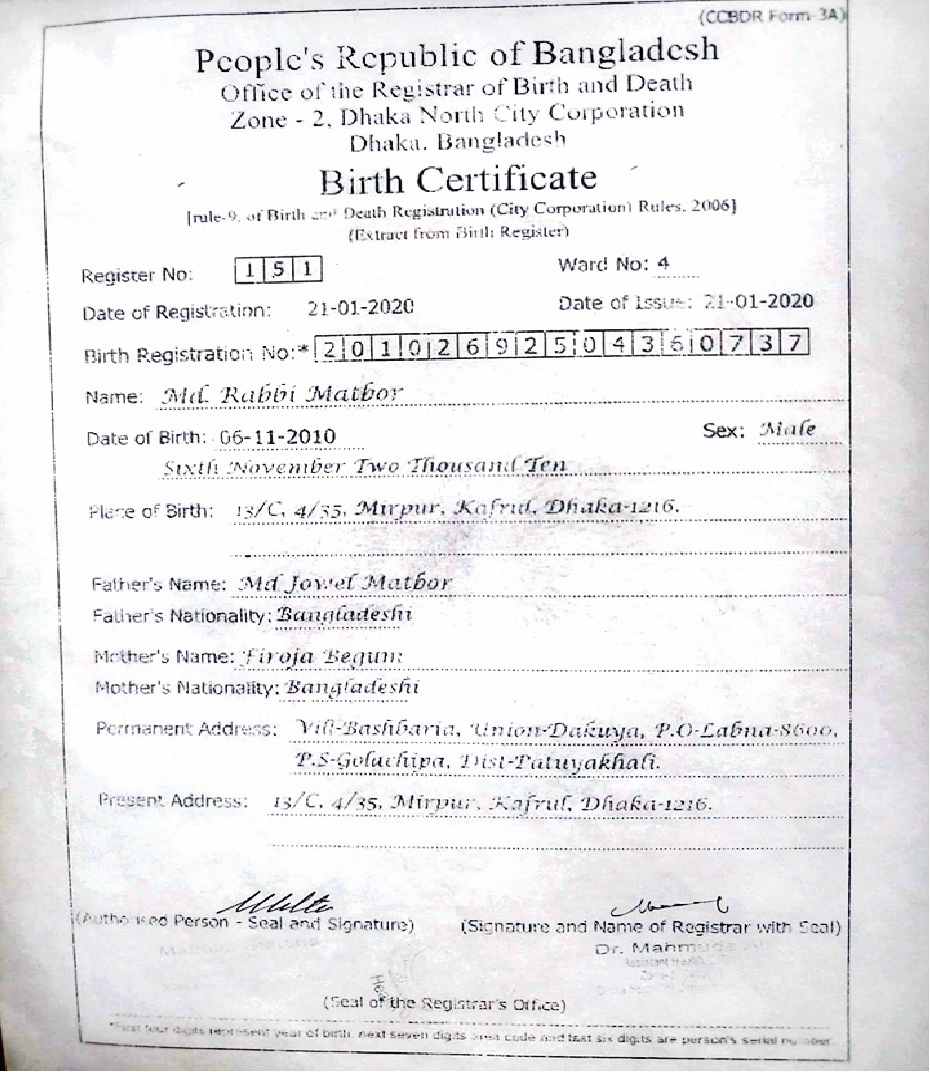 (CCBDR Form-3A)
People's Republic of Bangladesh
Office of the Registrar of Birth and Death
Zone - 2, Dhaka North City Corporation
Dhaka, Bangladesh
Birth Certificate
[rule-9, of Birth and Death Registration (City Corporation) Rules, 2006]
(Extract from Birth Register)
Register No: 151 Ward No: 4
Date of Registration: 21-01-2020 Date of Issue: 21-01-2020
Birth Registration No:* 20102692504360737
Name: Md. Rabbi Matbor
Date of Birth: 06-11-2010 Sex: Male
Sixth November Two Thousand Ten
Place of Birth: 13/C, 4/35, Mirpur, Kafrul, Dhaka-1216.
Father's Name: Md Jowel Matbor
Father's Nationality: Bangladeshi
Mother's Name: Firoja Begum
Mother's Nationality: Bangladeshi
Permanent Address: Vill-Bashbaria, Union-Dakuya, P.O-Labna-8600,
P.S-Golachipa, Dist-Patuyakhali.
Present Address: 13/C, 4/35, Mirpur, Kafrul, Dhaka-1216.
(Authorised Person - Seal and Signature) (Signature and Name of Registrar with Seal)
Dr. Mahmuda
(Seal of the Registrar's Office)
*First four digits represent year of birth, next seven digits area code and last six digits are person's serial number.